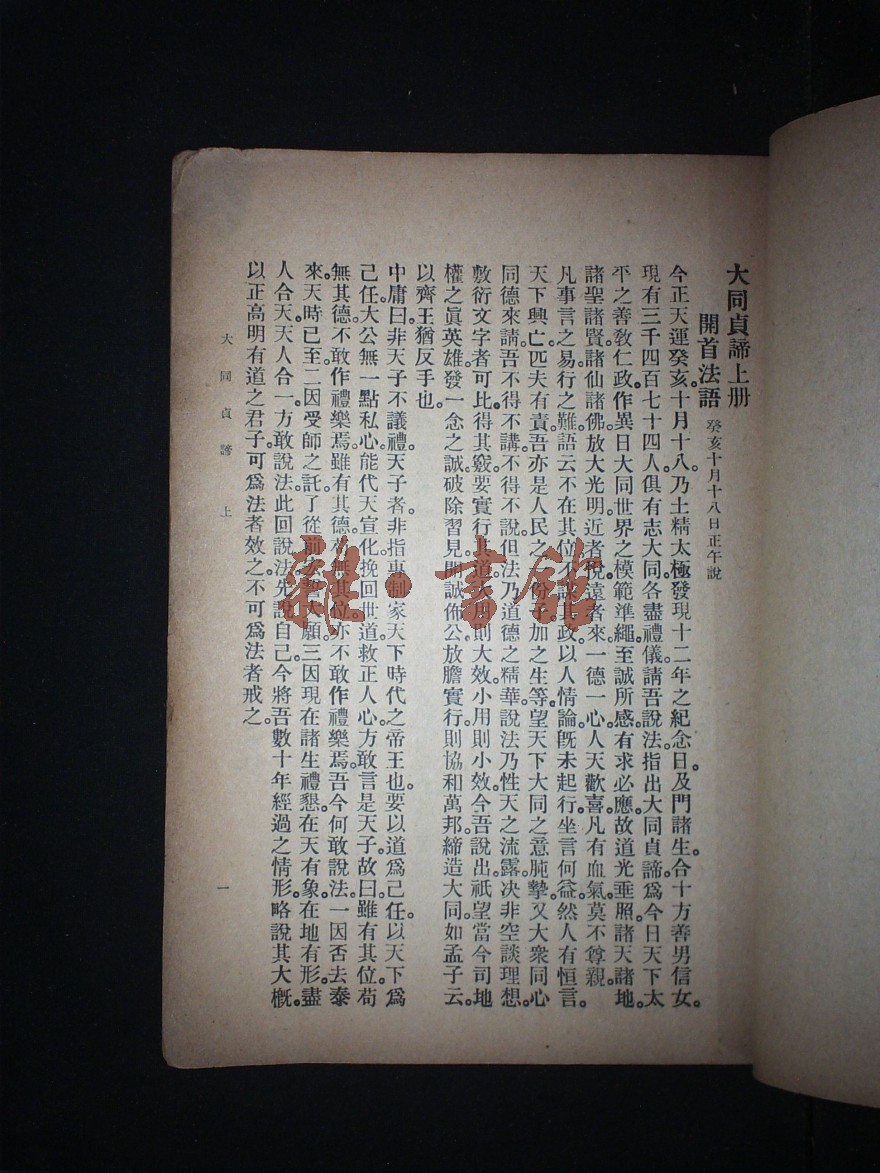 大同貞諦上册
開首法語 癸亥十月十八日正午說
今正天運癸亥十月十八。乃土精太極發現十二年之紀念日。及門諸生。合十方善男信女。
現有三千四百七十四人。俱有志大同。各盡禮儀。請吾說法。指出大同貞諦。爲今日天下太
平之善敎仁政。作異日大同世界之模範準繩。至誠所感。有求必應。故道光垂照。諸天諸地。
諸聖諸賢。諸仙諸佛。放大光明。近者悅。遠者來。一德一心。人天歡喜。凡有血氣。莫不尊親。
凡事言之易。行之難。語云不在其位。不謀其政。以人情論。旣未起行。坐言何益。然人有恒言。
天下興亡。匹夫有責。吾亦是人民之一份子。加之生等。望天下大同之意肫摯。又大衆同心
同德來請。吾不得不講。不得不說。但法乃道德之精華。說法乃性天之流露。决非空談理想。
敷衍文字者可比。得其竅要。實行其道。大用則大效。小用則小效。今吾說出。祇望當今司地
權之眞英雄。發一念之誠。破除習見。開誠佈公。放膽實行。則協和萬邦。締造大同。如孟子云。
以齊王猶反手也。
中庸曰。非天子不議禮。天子者。非指專制家天下時代之帝王也。要以道爲己任。以天下爲
己任。大公無一點私心。能代天宣化。挽回世道。救正人心。方敢言是天子。故曰。雖有其位。苟
無其德。不敢作禮樂焉。雖有其德。苟無其位。亦不敢作禮樂焉。吾今何敢說法。一因否去泰
來。天時已至。二因受師之託。了從前大願。三因現在諸生禮懇。在天有象。在地有形。盡
人合天。天人合一。方敢說法。此回說法。先說自己。今將吾數十年經過之情形。略說其大概。
以正高明有道之君子。可爲法者效之。不可爲法者戒之。
大同貞諦 上
一
雜·書館